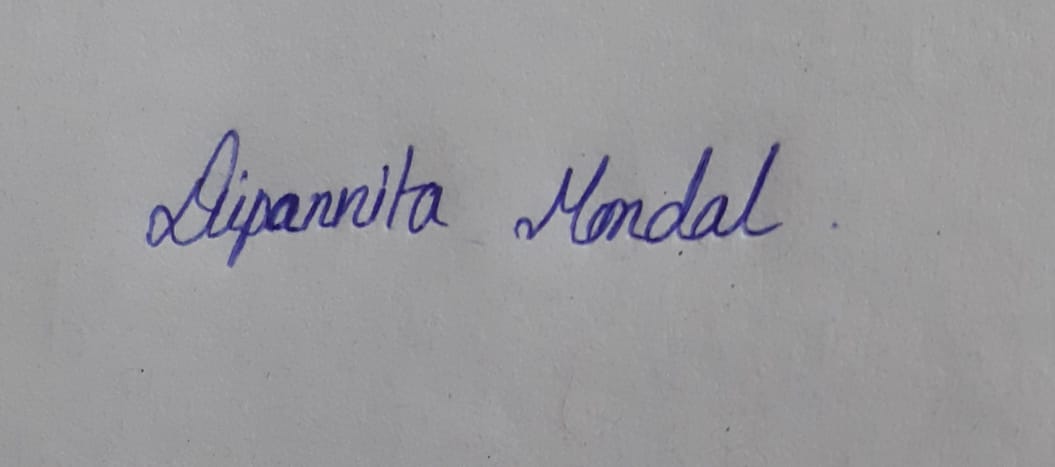 Dipannita Mondal.